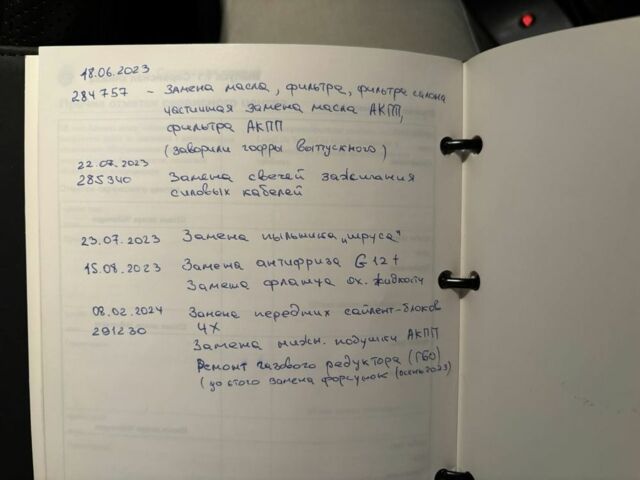 18.06.2023
284757 - Замена масла, фильтра, фильтра салона
частичная замена масла АКПП,
фильтра АКПП
(заварили гофры выпускного)
22.07.2023
285340 Замена свечей зажигания
силовых кабелей
23.07.2023 Замена пыльника "шруса"
15.08.2023 Замена антифриза G12+
Замена фланца ох. жидкости
08.02.2024 Замена передних сайлент-блоков
291230 4х
Замена нижн. подушки АКПП
Ремонт газового редуктора (ГБО)
(до этого замена форсунок (осень 2023)